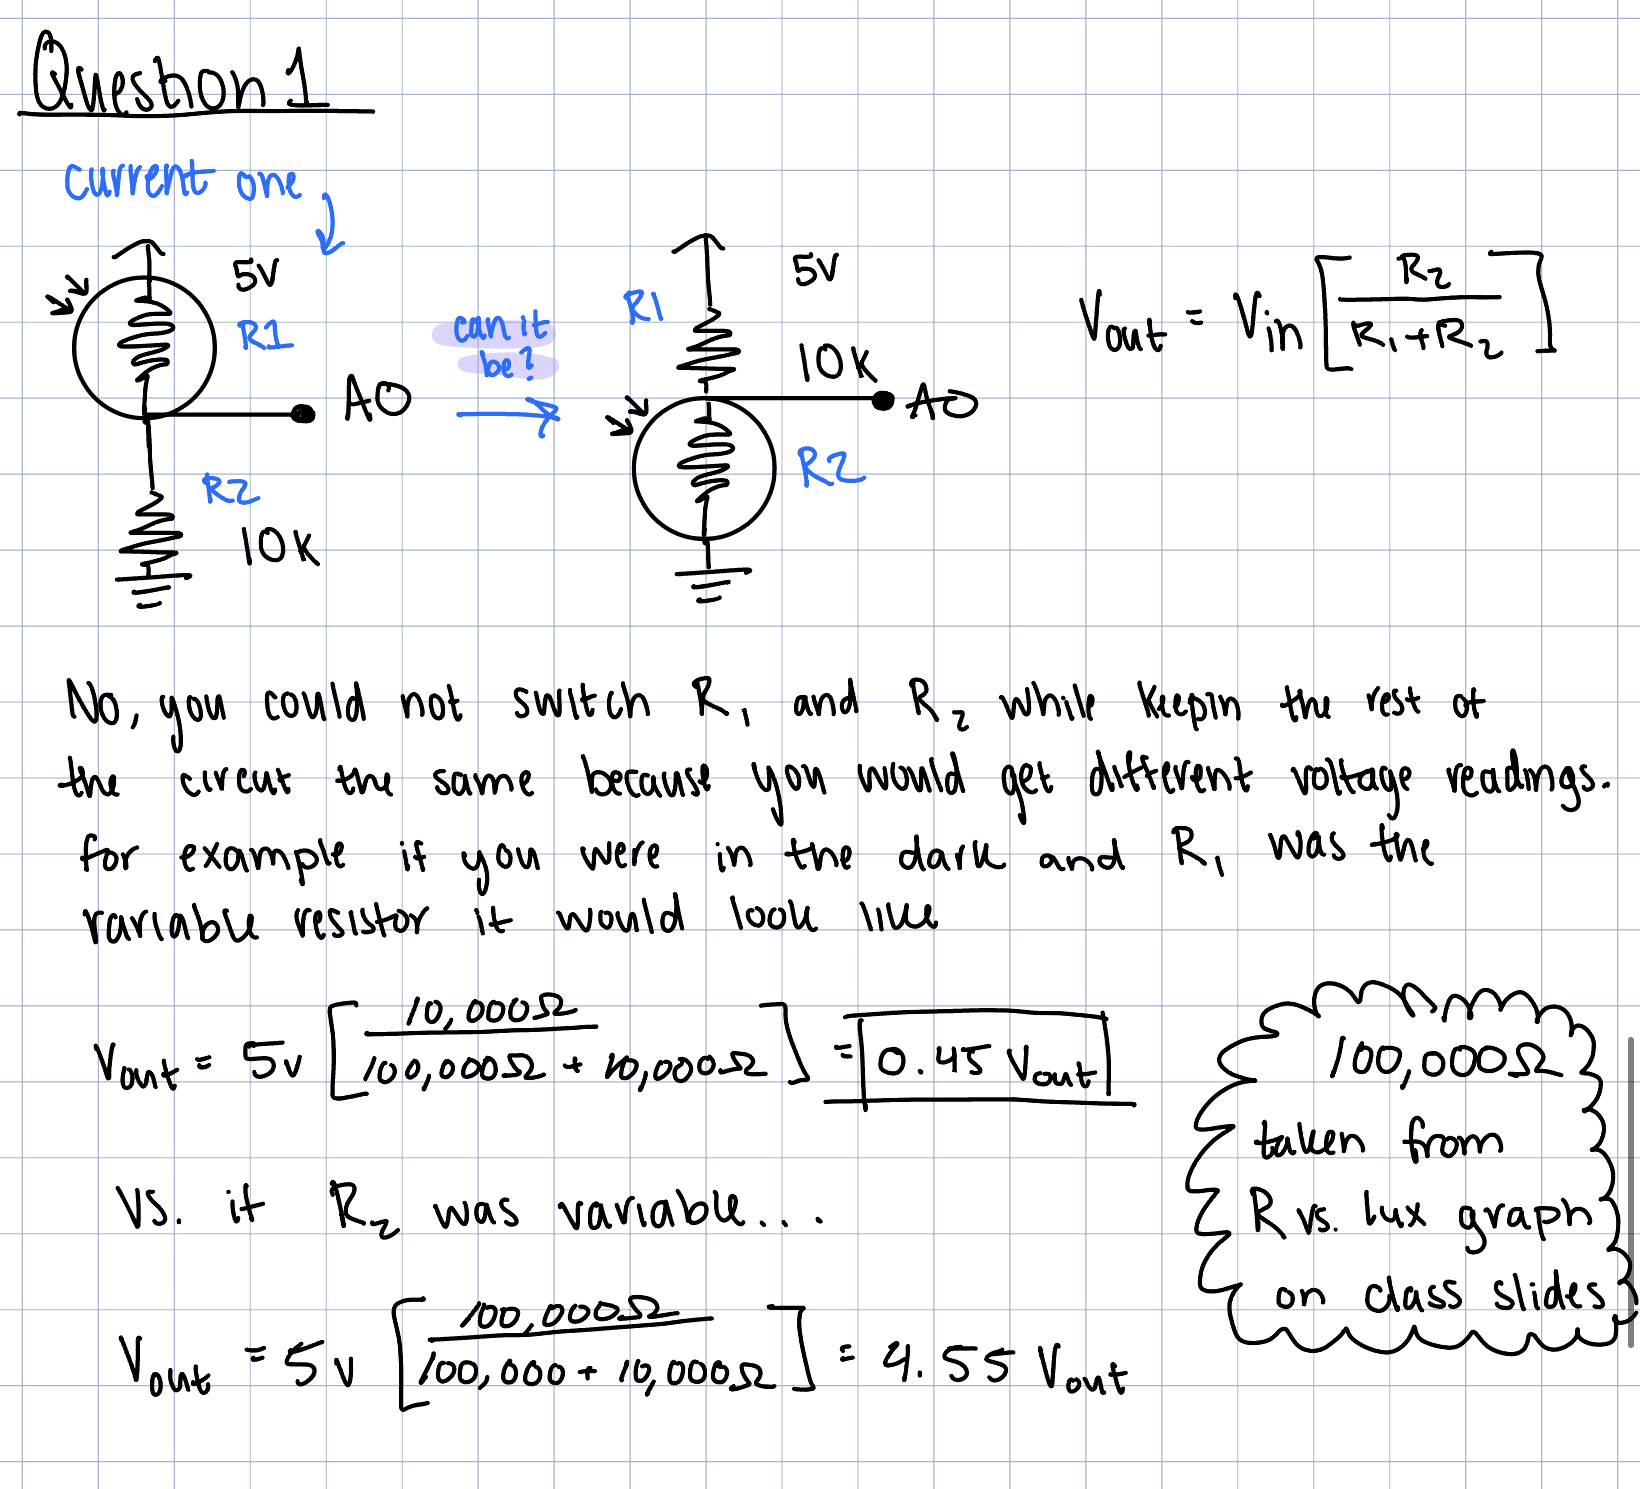 Question 1
current one
5V
R1
A0
R2
10K
can it
be?
5V
R1
10K
A0
R2
Vout = Vin [ R2 / (R1 + R2) ]
No, you could not switch R1 and R2 while keepin the rest of
the circut the same because you would get different voltage readings.
for example if you were in the dark and R1 was the
variable resistor it would look like
Vout = 5v [ 10,000Ω / (100,000Ω + 10,000Ω) ] = 0.45 Vout
100,000Ω
taken from
R vs. lux graph
on class slides
VS. if R2 was variable...
Vout = 5v [ 100,000Ω / (100,000 + 10,000Ω) ] = 4.55 Vout